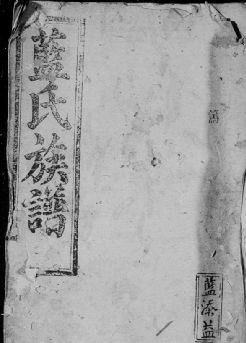 藍氏族譜
藍添益